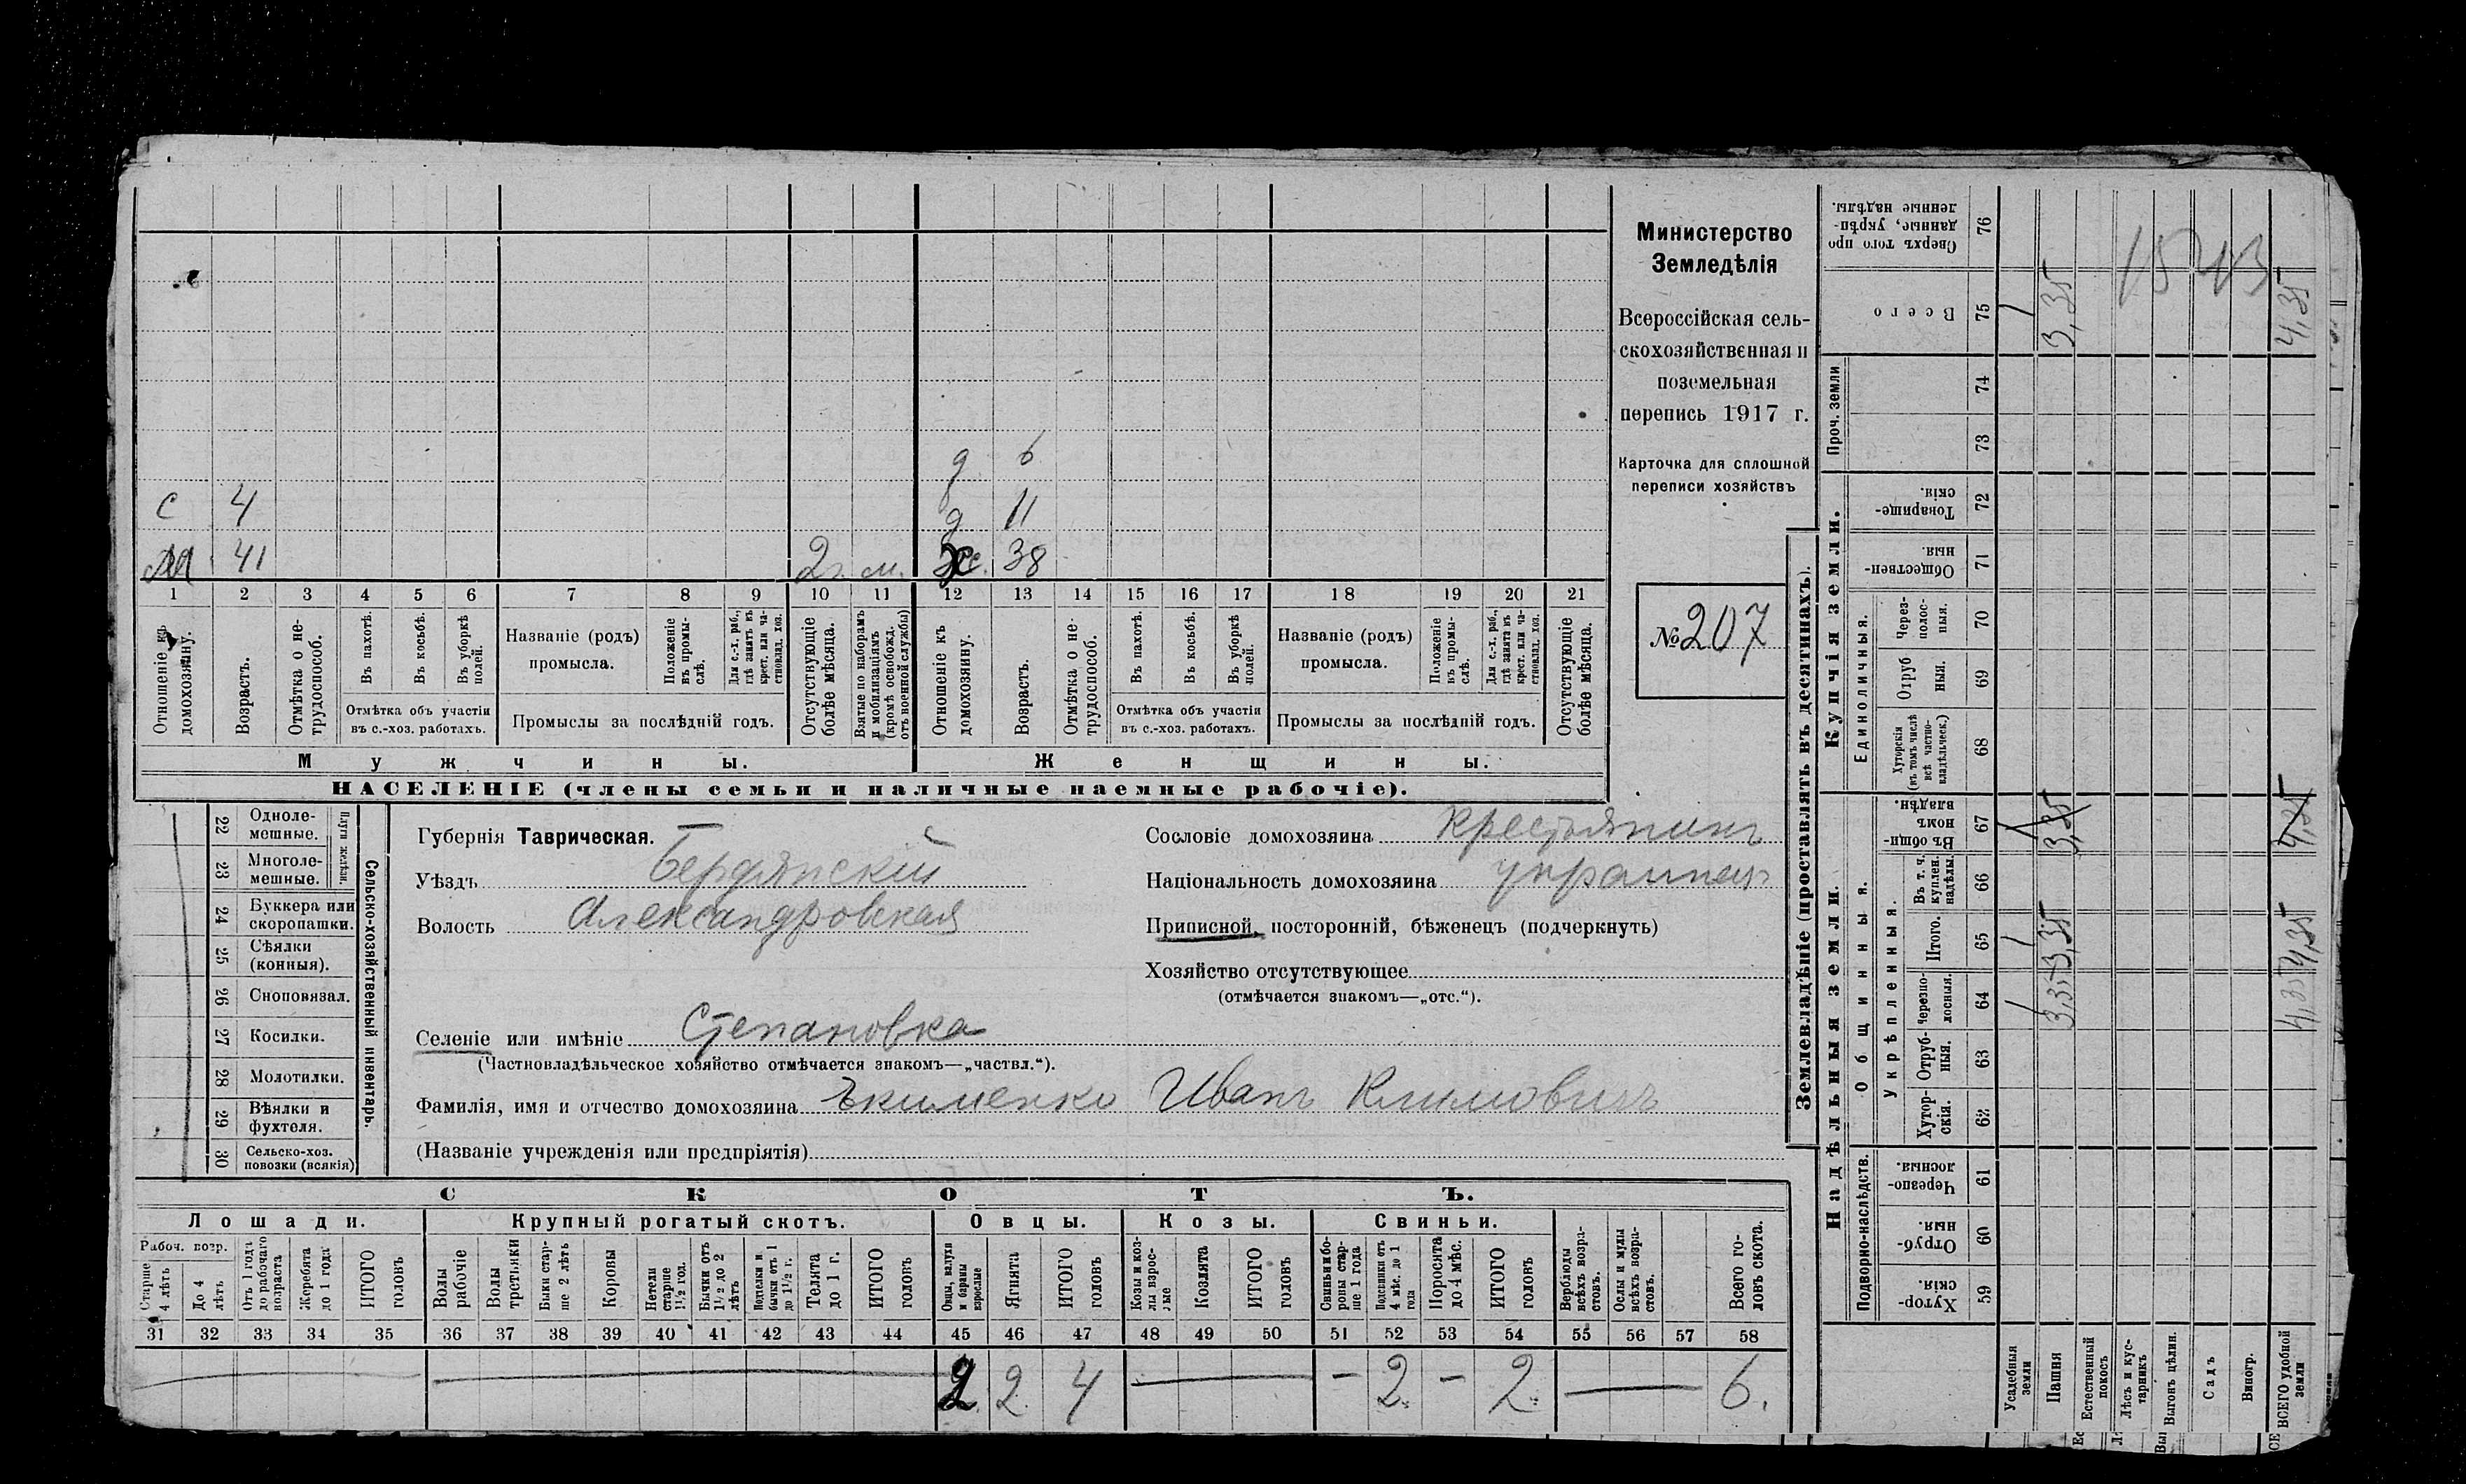 Министерство
Земледѣлія
Всероссійская сель-
скохозяйственная и
поземельная
перепись 1917 г.
Карточка для сплошной
переписи хозяйствъ
№ 207
д 6
с 4 д 11
М 41 2 г. м. ж. 38
1 2 3 4 5 6 7 8 9 10 11 12 13 14 15 16 17 18 19 20 21
Отношеніе къ домохозяину.
Возрастъ.
Отмѣтка о не-трудоспособ.
Въ пахотѣ.
Въ косьбѣ.
Въ уборкѣ полей.
Отмѣтка объ участіи
въ с.-хоз. работахъ.
Названіе (родъ)
промысла.
Положеніе въ промы-слѣ.
Для с.-х. раб., гдѣ занятъ въ крест. или ча-стновлад. хоз.
Промыслы за послѣдній годъ.
Отсутствующіе болѣе мѣсяца.
Взятые по наборамъ и мобилизаціямъ (кромѣ освобожд. отъ военной службы)
Отношеніе къ домохозяину.
Возрастъ.
Отмѣтка о не-трудоспособ.
Въ пахотѣ.
Въ косьбѣ.
Въ уборкѣ полей.
Отмѣтка объ участіи
въ с.-хоз. работахъ.
Названіе (родъ)
промысла.
Положеніе въ промы-слѣ.
Для с.-х. раб., гдѣ занята въ крест. или ча-стновлад. хоз.
Промыслы за послѣдній годъ.
Отсутствующіе болѣе мѣсяца.
Мужчины. Женщины.
НАСЕЛЕНІЕ (члены семьи и наличные наемные рабочіе).
22 Одноле-мешные.
23 Многоле-мешные.
Плуги желѣзн.
24 Буккера или скоропашки.
25 Сѣялки (конныя).
26 Сноповязал.
27 Косилки.
28 Молотилки.
29 Вѣялки и фухтеля.
30 Сельско-хоз. повозки (всякія)
Сельско-хозяйственный инвентарь.
Губернія Таврическая.
Уѣздъ Бердянскій
Волость Александровская
Селеніе или имѣніе Степановка
(Частновладѣльческое хозяйство отмѣчается знакомъ—„частвл.“).
Сословіе домохозяина крестьянинъ
Національность домохозяина
Приписной, посторонній, бѣженецъ (подчеркнуть)
Хозяйство отсутствующее
(отмѣчается знакомъ—„отс.“).
Фамилія, имя и отчество домохозяина Иванъ Климовичъ
(Названіе учрежденія или предпріятія)
СКОТЪ.
Лошади. Крупный рогатый скотъ. Овцы. Козы. Свиньи.
Рабоч. возр.
Старше 4 лѣтъ
До 4 лѣтъ
Отъ 1 года до рабочаго возраста
Жеребята до 1 года
ИТОГО головъ
Волы рабочіе
Волы третьяки
Быки стар-ше 2 лѣтъ
Коровы
Нетели старше 1½ год.
Бычки отъ 1½ до 2 лѣтъ
Подтелки и бычки отъ 1 до 1½ г.
Телята до 1 г.
ИТОГО головъ
Овцы, валухи и бараны взрослые
Ягнята
ИТОГО головъ
Козы и коз-лы взрос-лые
Козлята
ИТОГО головъ
Свиньи и бо-ровы стар-ше 1 года
Подсвинки отъ 4 мѣс. до 1 года
Поросята до 4 мѣс.
ИТОГО головъ
Верблюды всѣхъ возра-стовъ.
Ослы и мулы всѣхъ возра-стовъ.
Всего го-ловъ скота.
31 32 33 34 35 36 37 38 39 40 41 42 43 44 45 46 47 48 49 50 51 52 53 54 55 56 57 58
2 2 4 — — 2. — 2. — 6.
Землевладѣніе (проставлять въ десятинахъ).
Надѣльныя земли. Купчія земли. Проч. земли.
Подворно-наслѣдств. Общинныя. Единоличныя.
Укрѣпленныя.
Хутор-скія. 59
Отруб-ныя. 60
Черезпо-лосныя. 61
Хутор-скія. 62
Отруб-ныя. 63
Черезпо-лосныя. 64
Итого. 65
Въ т. ч. куплен. надѣлы. 66
Въ общи-номъ владѣн. 67
Хуторскія (въ томъ числѣ всѣ частно-владѣльческ.) 68
Отруб-ныя. 69
Через-полос-ныя. 70
Обществен-ныя. 71
Товарище-скія. 72
73
74
Всего 75
Сверхъ того про-данные, укрѣп-ленные надѣлы. 76
Усадебныя земли 1 1 1 1
Пашня 3,35 3,35 3,35 3,35
Естественный покосъ
Лѣсъ и кус-тарникъ
Выгонъ цѣлин.
Садъ
Виногр.
ВСЕГО удобной земли 4,35 4,35 4,35 4,35